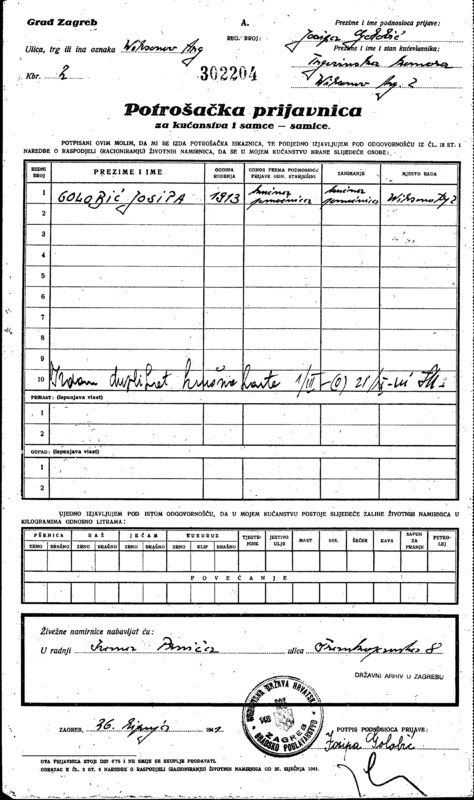 Grad Zagreb
A.
Prezime i ime podnosioca prijave:
Josipa Golobić
Ulica, trg ili ina oznaka Wilsonov trg
REG. BROJ:
Prezime i ime i stan kućevlasnika:
Kbr. 2
302204
Wilsonov trg. 2
Potrošačka prijavnica
za kućanstva i samce – samice.
POTPISANI OVIM MOLIM, DA MI SE IZDA POTROŠAČKA ISKAZNICA, TE PODJEDNO IZJAVLJUJEM POD ODGOVORNOŠĆU IZ ČL. 18 ST. 1
NAREDBE O RASPODJELI (RACIONIRANJU) ŽIVOTNIH NAMIRNICA, DA SE U MOJEM KUĆANSTVU HRANE SLIJEDEĆE OSOBE:
REDNI BROJ
PREZIME I IME
GODINA ROĐENJA
ODNOS PREMA PODNOSIOCU PRIJAVE ODN. STARJEŠINI
ZANIMANJE
MJESTO RADA
1 GOLOBIĆ JOSIPA 1913 kućna pomoćnica kućna pomoćnica Wilsonov trg 2
2
3
4
5
6
7
8
9
10 Izdan duplikat krušne karte
PRIRAST: (ispunjava vlast)
1
2
OTPAD: (ispunjava vlast)
1
2
UJEDNO IZJAVLJUJEM POD ISTOM ODGOVORNOŠĆU, DA U MOJEM KUĆANSTVU POSTOJE SLIJEDEĆE ZALIHE ŽIVOTNIH NAMIRNICA U
KILOGRAMIMA ODNOSNO LITRAMA:
PŠENICA RAŽ JEČAM KUKURUZ TJESTENINE JESTIVO ULJE MAST SOL ŠEĆER KAVA SAPUN ZA PRANJE PETROLEJ
ZRNO BRAŠNO ZRNO BRAŠNO ZRNO BRAŠNO ZRNO KLIP BRAŠNO
POVEĆANJE
Živežne namirnice nabavljat ću:
U radnji
ulica Frankopanska 8
DRŽAVNI ARHIV U ZAGREBU
NEZAVISNA DRŽAVA HRVATSKA
ZAGREB
GRADSKO POGLAVARSTVO
ZAGREB, 26. lipnja 1941
POTPIS PODNOSIOCA PRIJAVE:
Josipa Golobić
OVA PRIJAVNICA STOJI DIN 0'75 I NE SMIJE SE SKUPLJE PRODAVATI.
OBRAZAC K ČL. 2 ST. 3 NAREDBE O RASPODJELI (RACIONIRANJU) ŽIVOTNIH NAMIRNICA OD 25. SIJEČNJA 1941.